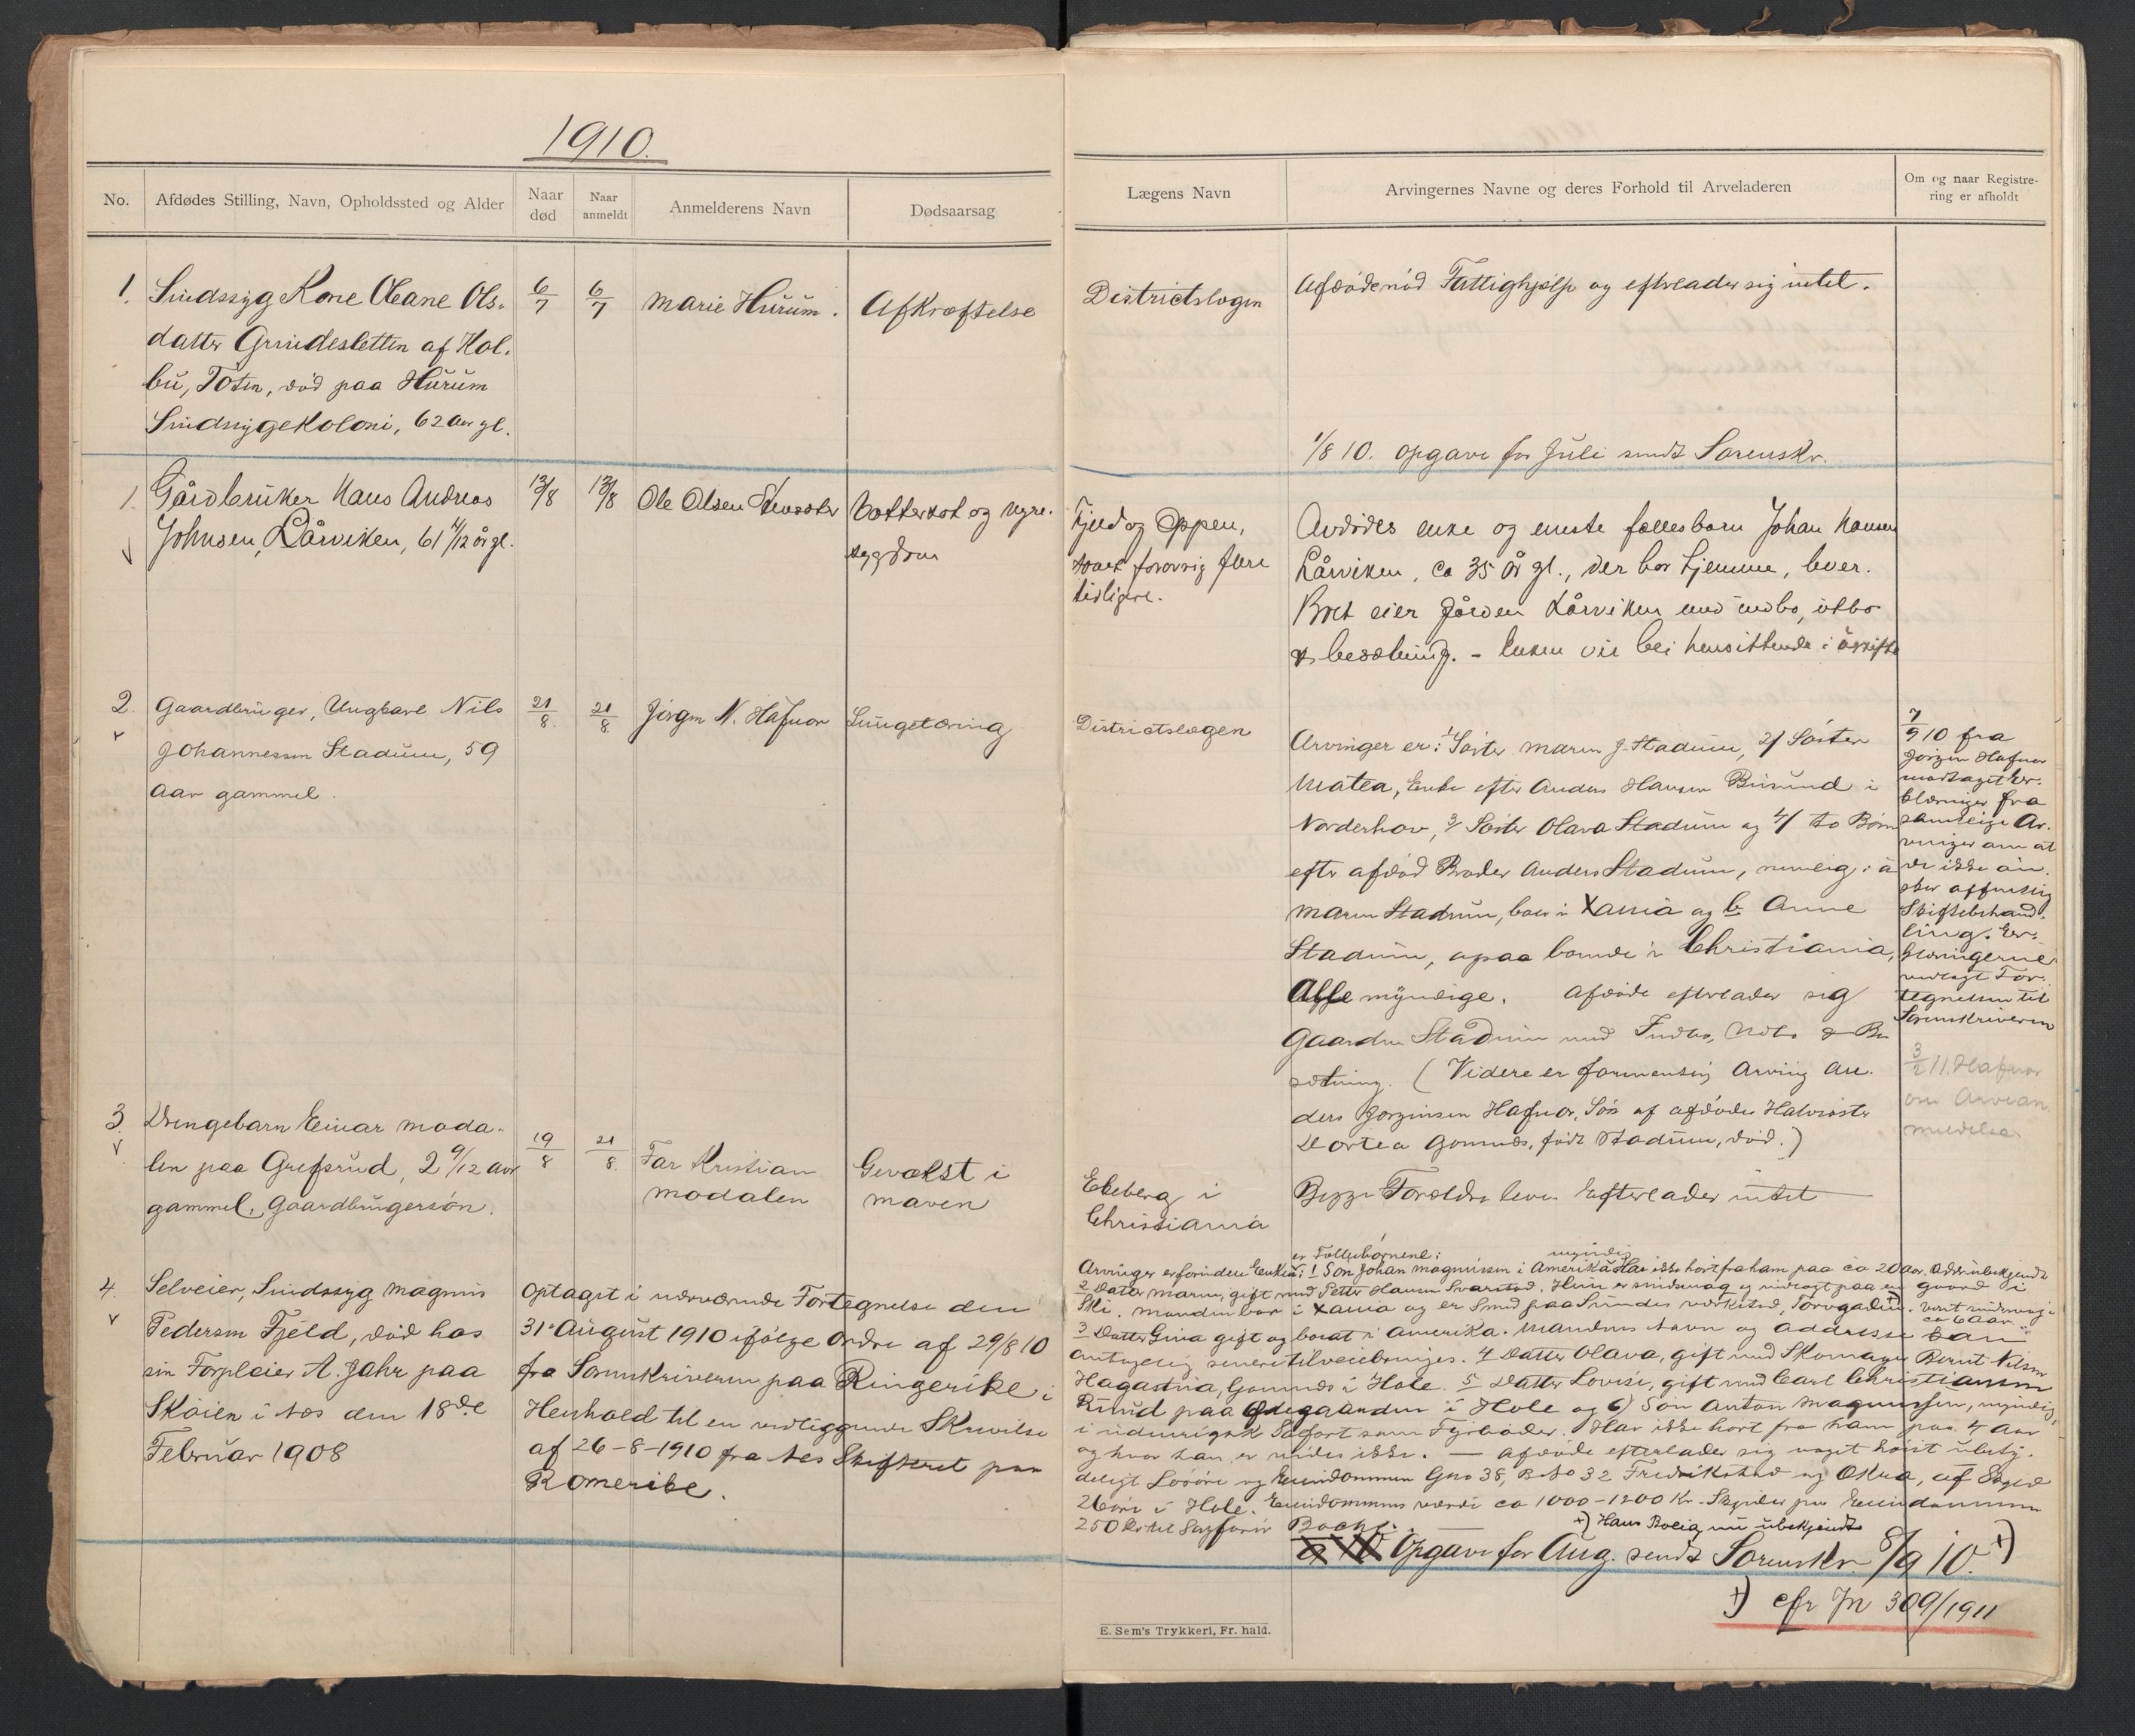 1910.
No.
Afdødes Stilling, Navn, Opholdssted og Alder
Naar død
Naar anmeldt
Anmelderens Navn
Dødsaarsag
Lægens Navn
Arvingernes Navne og deres Forhold til Arveladeren
Om og naar Registrering er afholdt
1. Sindssyg Kone Oleane Ols-
datter Grindesletten af Kol-
bu, Toten, død paa Hurum
Sindssygekoloni, 62 aar gl.
6/7
6/7
Marie Hurum.
Afkræftelse
Districtslægen
Afdøde nød Fattighjælp og efterlader sig intet.
1/8 10. Opgave for Juli sendt Sorenskr.
1. Gårdbruker Hans Andreas
Johnsen, Lårviken, 61 4/12 år gl.
13/8
13/8
Ole Olsen
og nyre-
sygdom
Fjeld og Oppen,
forøvrig flere
tidligere.
Avdødes enke og eneste fællesbarn Johan Hansen
Lårviken, ca 35 år gl., der bor hjemme, lever.
Boet eier gården Lårviken med indbo, utbo
& besætning. - Enken vil bli hensittende i uskifte
2. Gaardbruger, Ungkarl Nils
Johannessen Stadum, 59
Aar gammel.
21/8.
21/8.
Jørgen N. Hafnor
Lungetæring
Districtslægen
Arvinger er: 1/ Søster Maren J. Stadum, 2/ Søster
Matea, Enke efter Anders Hansen Busund i
Norderhov, 3/ Søster Olava Stadum og 4/ to Børn
efter afdød Broder Anders Stadum, nemlig: a
Maren Stadum, boer i Xania og b Anne
Stadum, ogsaa boende i Christiania,
Alle myndige. Afdøde efterlader sig
Gaarden Stadum med Indbo, Udbo & Be
sætning. (Videre er formentlig Arving An-
ders Jørginsen Hafnor, Søn af afdødes Halvsøster
Dortea Gomnæs, født Stadum, død.)
7/9 10 fra
Jørgen Hafnor
modtaget Er-
klæringer fra
samtlige Ar-
vinger om at
de ikke øn-
sker offentlig
Skiftebehand-
ling. Er-
klæringerne
vedlagt For-
tegnelsen til
Sorenskriveren
3/2 11. Hafnor
om Arvean-
meldelse
3. Drengebarn Einar Moda-
len paa Grefsrud, 2 9/12 Aar
gammel, Gaardbrugersøn.
19/8
21/8.
Far Kristian
Modalen
Gevækst i
maven
Ekeberg i
Christiania
Begge Forældre lever Efterlader intet
4. Selveier, Sindssyg Magnus
Pedersen Fjeld, død hos
sin Forpleier A. Jahr paa
Skøien i Nes den 18de
Februar 1908
Optaget i nærværende Fortegnelse den
31te August 1910 ifølge Ordre af 29/8 10
fra Sorenskriveren paa Ringerike i
Henhold til en vedliggende Skrivelse
af 26-8-1910 fra Nes Skifteret paa
Romerike.
er Fællesbørnene: myndig
Arvinger er foruden Enken: 1 Søn Johan Magnussen i Amerika Har ikke hørt fra ham paa ca 20 Aar. Adr. ubekjendt
2 Datter Maren, gift med Petter Hansen Svarstad. Hun er sindssvag og utlagt paa en gaard i
Ski. Manden bor i Xania og er Smed paa Verksted, Torvgaden. været sindssvag i ca 6 Aar
3 Datter Gina gift og bosat i Amerika. Mandens Navn og addresse kan
antagelig senere tilveiebringes. 4 Datter Olava, gift med Skomager Bernt Nilsen
Hagastua, Gomnæs i Hole. 5 Datter Lovise, gift med Carl Christiansen
Rud paa Ødegaarden i Hole og 6) Søn Anton Magnussen, myndig,
i udenrigsk Søfart som Fyrbøder. Har ikke hørt fra ham paa 4 Aar
og hvor han er vides ikke. — Afdøde efterlader sig noget høist ubety-
deligt Løsøre og Eiendommen Gno 38, B No 32 Fredrikstad og Økra, af Skyld
26 øre i Hole. Eiendommens værdi ca 1000-1200 Kr. Skylder paa Eiendommen
250 Kr til
+) Hans Bolig nu ubekjendt
Opgave for Aug. sendt Sorenskr. 8/9 10. +)
+) cfr Jn 309/1911
E. Sem's Trykkeri, Fr.hald.